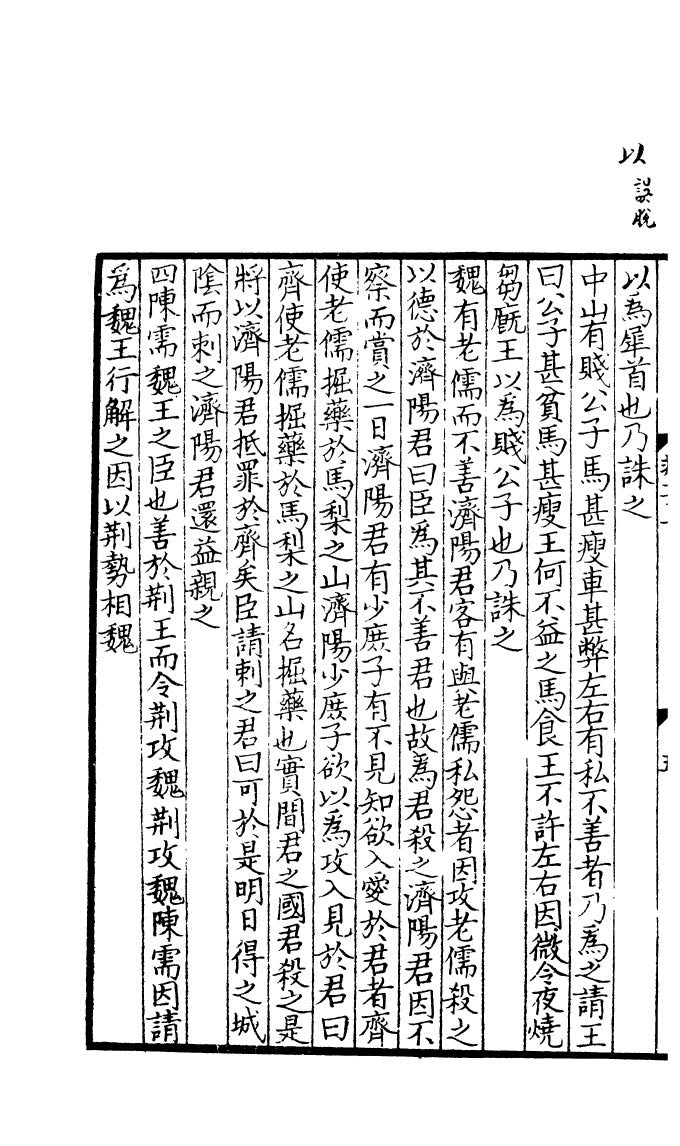 以誤脫
以為犀首也乃誅之
中山有賤公子馬甚瘦車甚弊左右有私不善者乃為之請王
曰公子甚貧馬甚瘦王何不益之馬食王不許左右因微令夜燒
芻厩王以為賤公子也乃誅之
魏有老儒而不善濟陽君客有與老儒私怨者因攻老儒殺之
以德於濟陽君曰臣為其不善君也故為君殺之濟陽君因不
察而賞之一日濟陽君有少庶子有不見知欲入愛於君者齊
使老儒掘藥於馬梨之山濟陽少庶子欲以為攻入見於君曰
齊使老儒掘藥於馬梨之山名掘藥也實間君之國君殺之是
將以濟陽君抵罪於齊矣臣請刺之君曰可於是明日得之城
陰而刺之濟陽君還益親之
四陳需魏王之臣也善於荆王而令荆攻魏荆攻魏陳需因請
為魏王行解之因以荆勢相魏